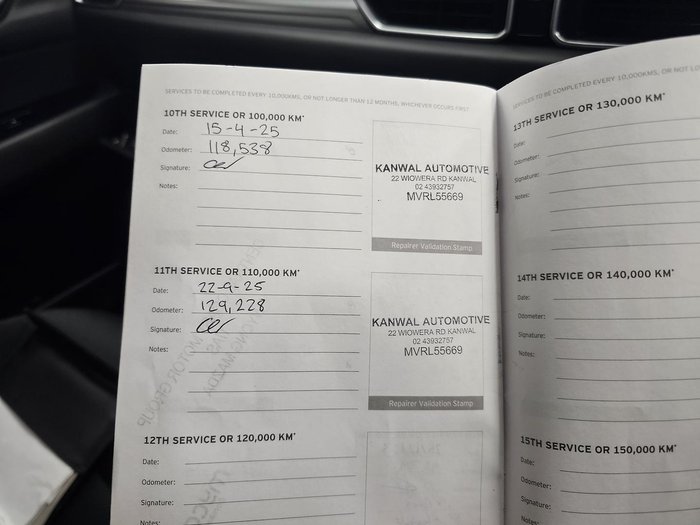 SERVICES TO BE COMPLETED EVERY 10,000KMS, OR NOT LONGER THAN 12 MONTHS, WHICHEVER OCCURS FIRST
10TH SERVICE OR 100,000 KM*
Date: 15-4-25
Odometer: 118,538
Signature:
Notes:
KANWAL AUTOMOTIVE
22 WIOWERA RD KANWAL
02 43932757
MVRL55669
Repairer Validation Stamp
11TH SERVICE OR 110,000 KM*
Date: 22-9-25
Odometer: 129,228
Signature:
Notes:
KANWAL AUTOMOTIVE
22 WIOWERA RD KANWAL
02 43932757
MVRL55669
Repairer Validation Stamp
12TH SERVICE OR 120,000 KM*
Date:
Odometer:
Signature:
Notes:
SERVICES TO BE COMPLETED EVERY 10,000KMS, OR NOT LO
13TH SERVICE OR 130,000 KM*
Date:
Odometer:
Signature:
Notes:
14TH SERVICE OR 140,000 KM*
Date:
Odometer:
Signature:
Notes:
15TH SERVICE OR 150,000 KM*
Date:
Odometer:
Signature:
Notes: